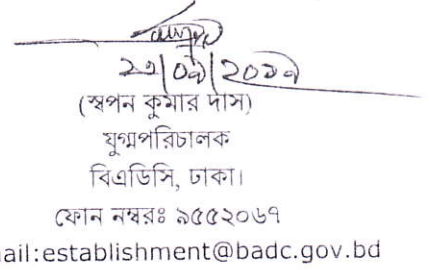 ২৩/০৯/২০১৯
(স্বপন কুমার দাস)
যুগ্মপরিচালক
বিএডিসি, ঢাকা।
ফোন নম্বরঃ ৯৫৫২০৬৭
ail:establishment@badc.gov.bd